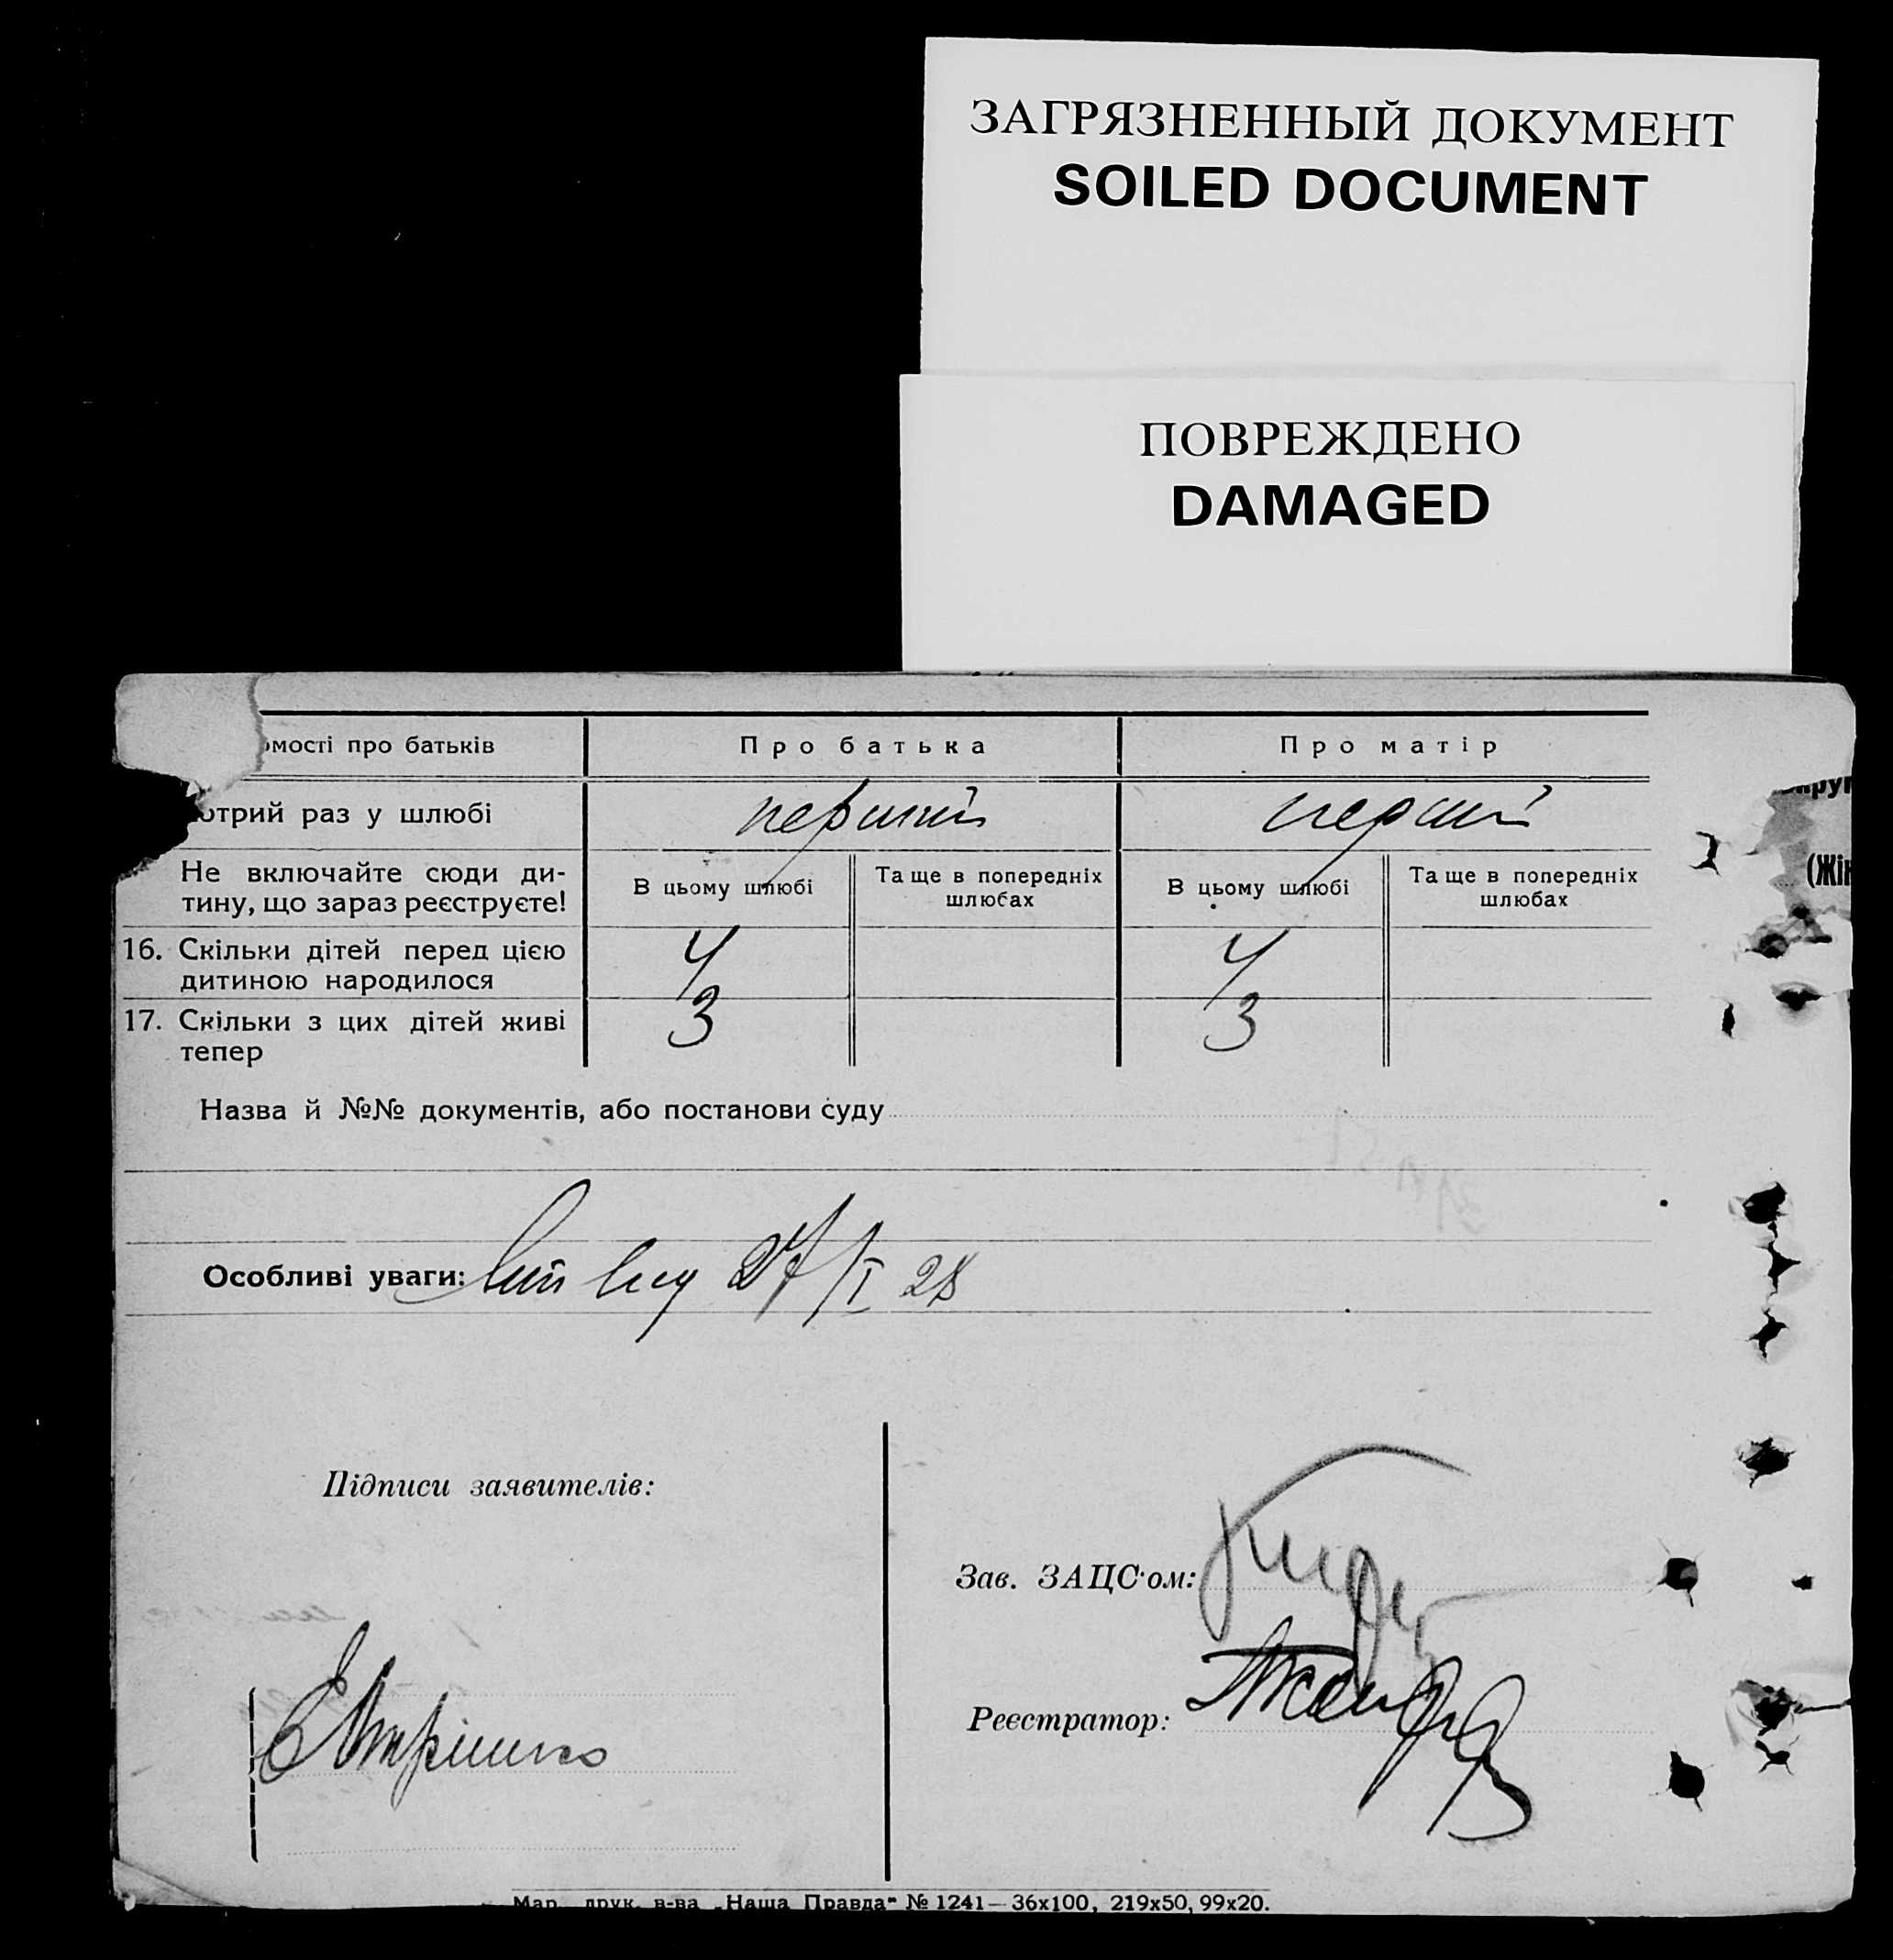 ЗАГРЯЗНЕННЫЙ ДОКУМЕНТ
SOILED DOCUMENT
ПОВРЕЖДЕНО
DAMAGED
омості про батьків
Про батька
Про матір
отрий раз у шлюбі
перший
перший
Не включайте сюди ди-
тину, що зараз реєструєте!
В цьому шлюбі
Та ще в попередніх
шлюбах
В цьому шлюбі
Та ще в попередніх
шлюбах
16. Скільки дітей перед цією
дитиною народилося
4
4
17. Скільки з цих дітей живі
тепер
3
3
(Жін
Назва й №№ документів, або постанови суду
Особливі уваги: 27/I 28
Підписи заявителів:
Зав. ЗАЦС'ом:
Реєстратор:
Мар. друк. в-ва „Наша Правда" № 1241—36х100, 219х50, 99х20.